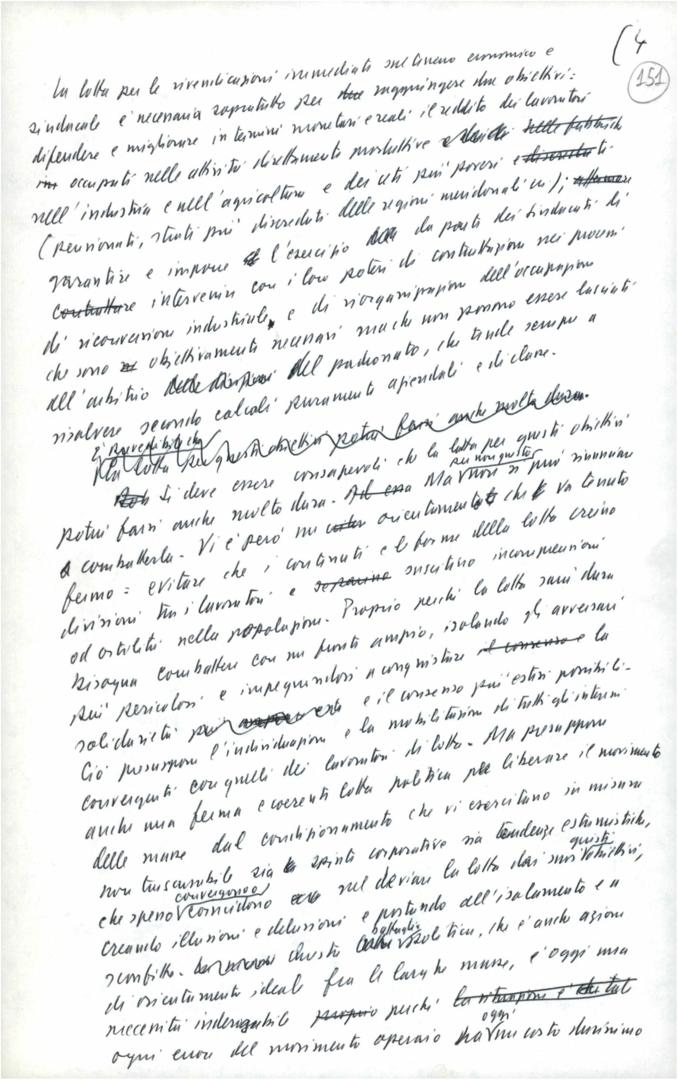 (4
151
La lotta per le rivendicazioni immediate sul terreno economico e
sindacale è necessaria sopratutto per due raggiungere due obiettivi:
difendere e migliorare in termini monetari e reali il reddito dei lavoratori
occupati nelle attività direttamente produttive nelle fabbriche
nell'industria e nell'agricoltura e dei ceti più poveri e diseredati
(pensionati, strati più diseredati delle regioni meridonali ecc);
garantire e imporre l'esercizio da parte dei sindacati di
contrattare intervenire con i loro poteri di contrattazione nei processi
di riconversione industriale, e di riorganizzazione dell'occupazione
che sono obiettivamente necessari ma che non possono essere lasciati
all'arbitrio del padronato, che tende sempre a
risolvere secondo calcoli puramente aziendali e di classe.
È prevedibile che
La lotta per questi obiettivi potrà farsi anche molto dura.
Si deve essere consapevoli che la lotta per questi obiettivi
per non questo
potrà farsi anche molto dura. Ad essa Ma non si può rinunciare
a combatterla. Vi è però un orientamento che va tenuto
fermo: evitare che i contenuti e le forme della lotta creino
divisioni tra i lavoratori e suscitino incomprensioni
od ostilità nella popolazione. Proprio perché la lotta sarà dura
bisogna combattere con un fronte ampio, isolando gli avversari
più pericolosi e impegnandosi a conquistare il consenso e la
solidarietà più e il consenso più estesi possibili.
Ciò presuppone l'individuazione e la mobilitazione di tutti gli interessi
convergenti con quelli dei lavoratori di lotta. Ma presuppone
anche una ferma e coerente lotta politica per liberare il movimento
delle masse dal condizionamento che vi esercitano in misura
non trascurabile sia spinte corporative sia tendenze estremistiche,
convergono questi
che spesso coincidono nel deviare la lotta dai suoi obiettivi,
creando illusioni e delusioni e portando all'isolamento e a
battaglia
sconfitte. Questa politica, che è anche azione
di orientamento ideale fra le larghe masse, è oggi una
necessità inderogabile proprio perché la situazione è
oggi
ogni errore del movimento operaio ha un costo durissimo